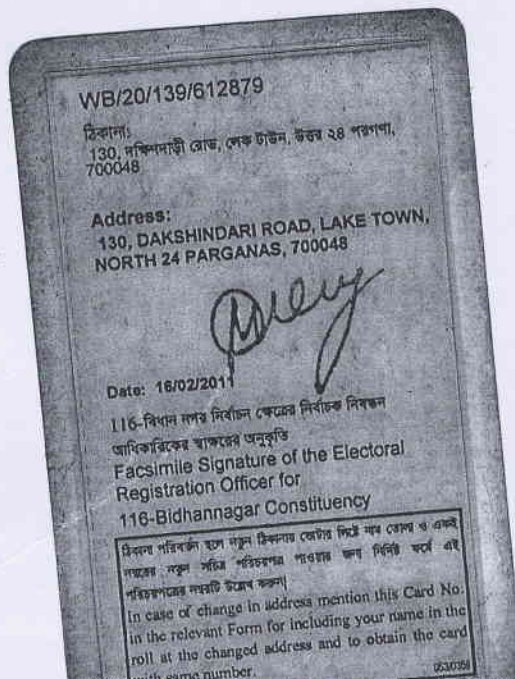 WB/20/139/612879
ঠিকানাঃ
130, দক্ষিণদাড়ী রোড, লেক টাউন, উত্তর ২৪ পরগণা,
700048
Address:
130, DAKSHINDARI ROAD, LAKE TOWN,
NORTH 24 PARGANAS, 700048
Date: 16/02/2011
116-বিধান নগর নির্বাচন ক্ষেত্রের নির্বাচক নিবন্ধন
আধিকারিকের স্বাক্ষরের অনুকৃতি
Facsimile Signature of the Electoral
Registration Officer for
116-Bidhannagar Constituency
ঠিকানা পরিবর্তন হলে নতুন ঠিকানায় ভোটার লিস্টে নাম তোলা ও একই
নম্বরের নতুন সচিত্র পরিচয়পত্র পাওয়ার জন্য নির্দিষ্ট ফর্মে এই
পরিচয়পত্রের নম্বরটি উল্লেখ করুন|
In case of change in address mention this Card No.
in the relevant Form for including your name in the
roll at the changed address and to obtain the card
with same number.